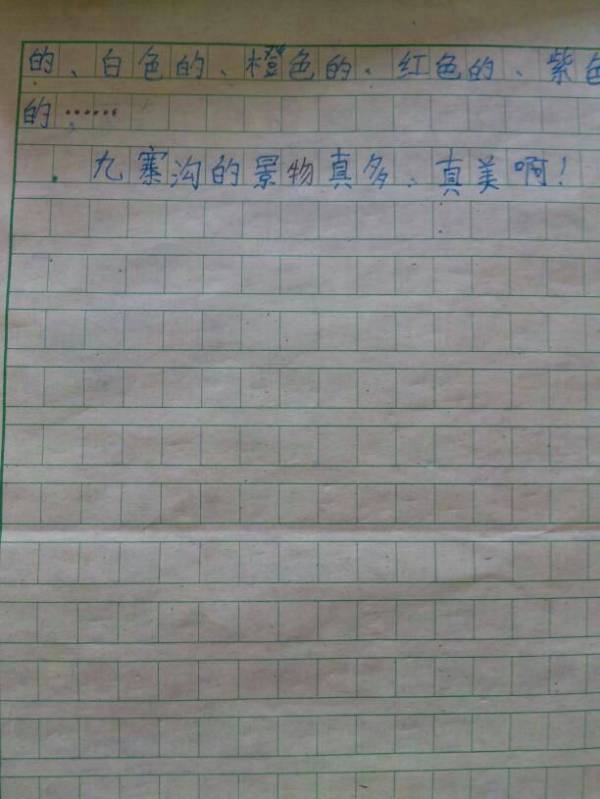 的、白色的、橙色的、红色的、紫色
的……
九寨沟的景物真多、真美啊！